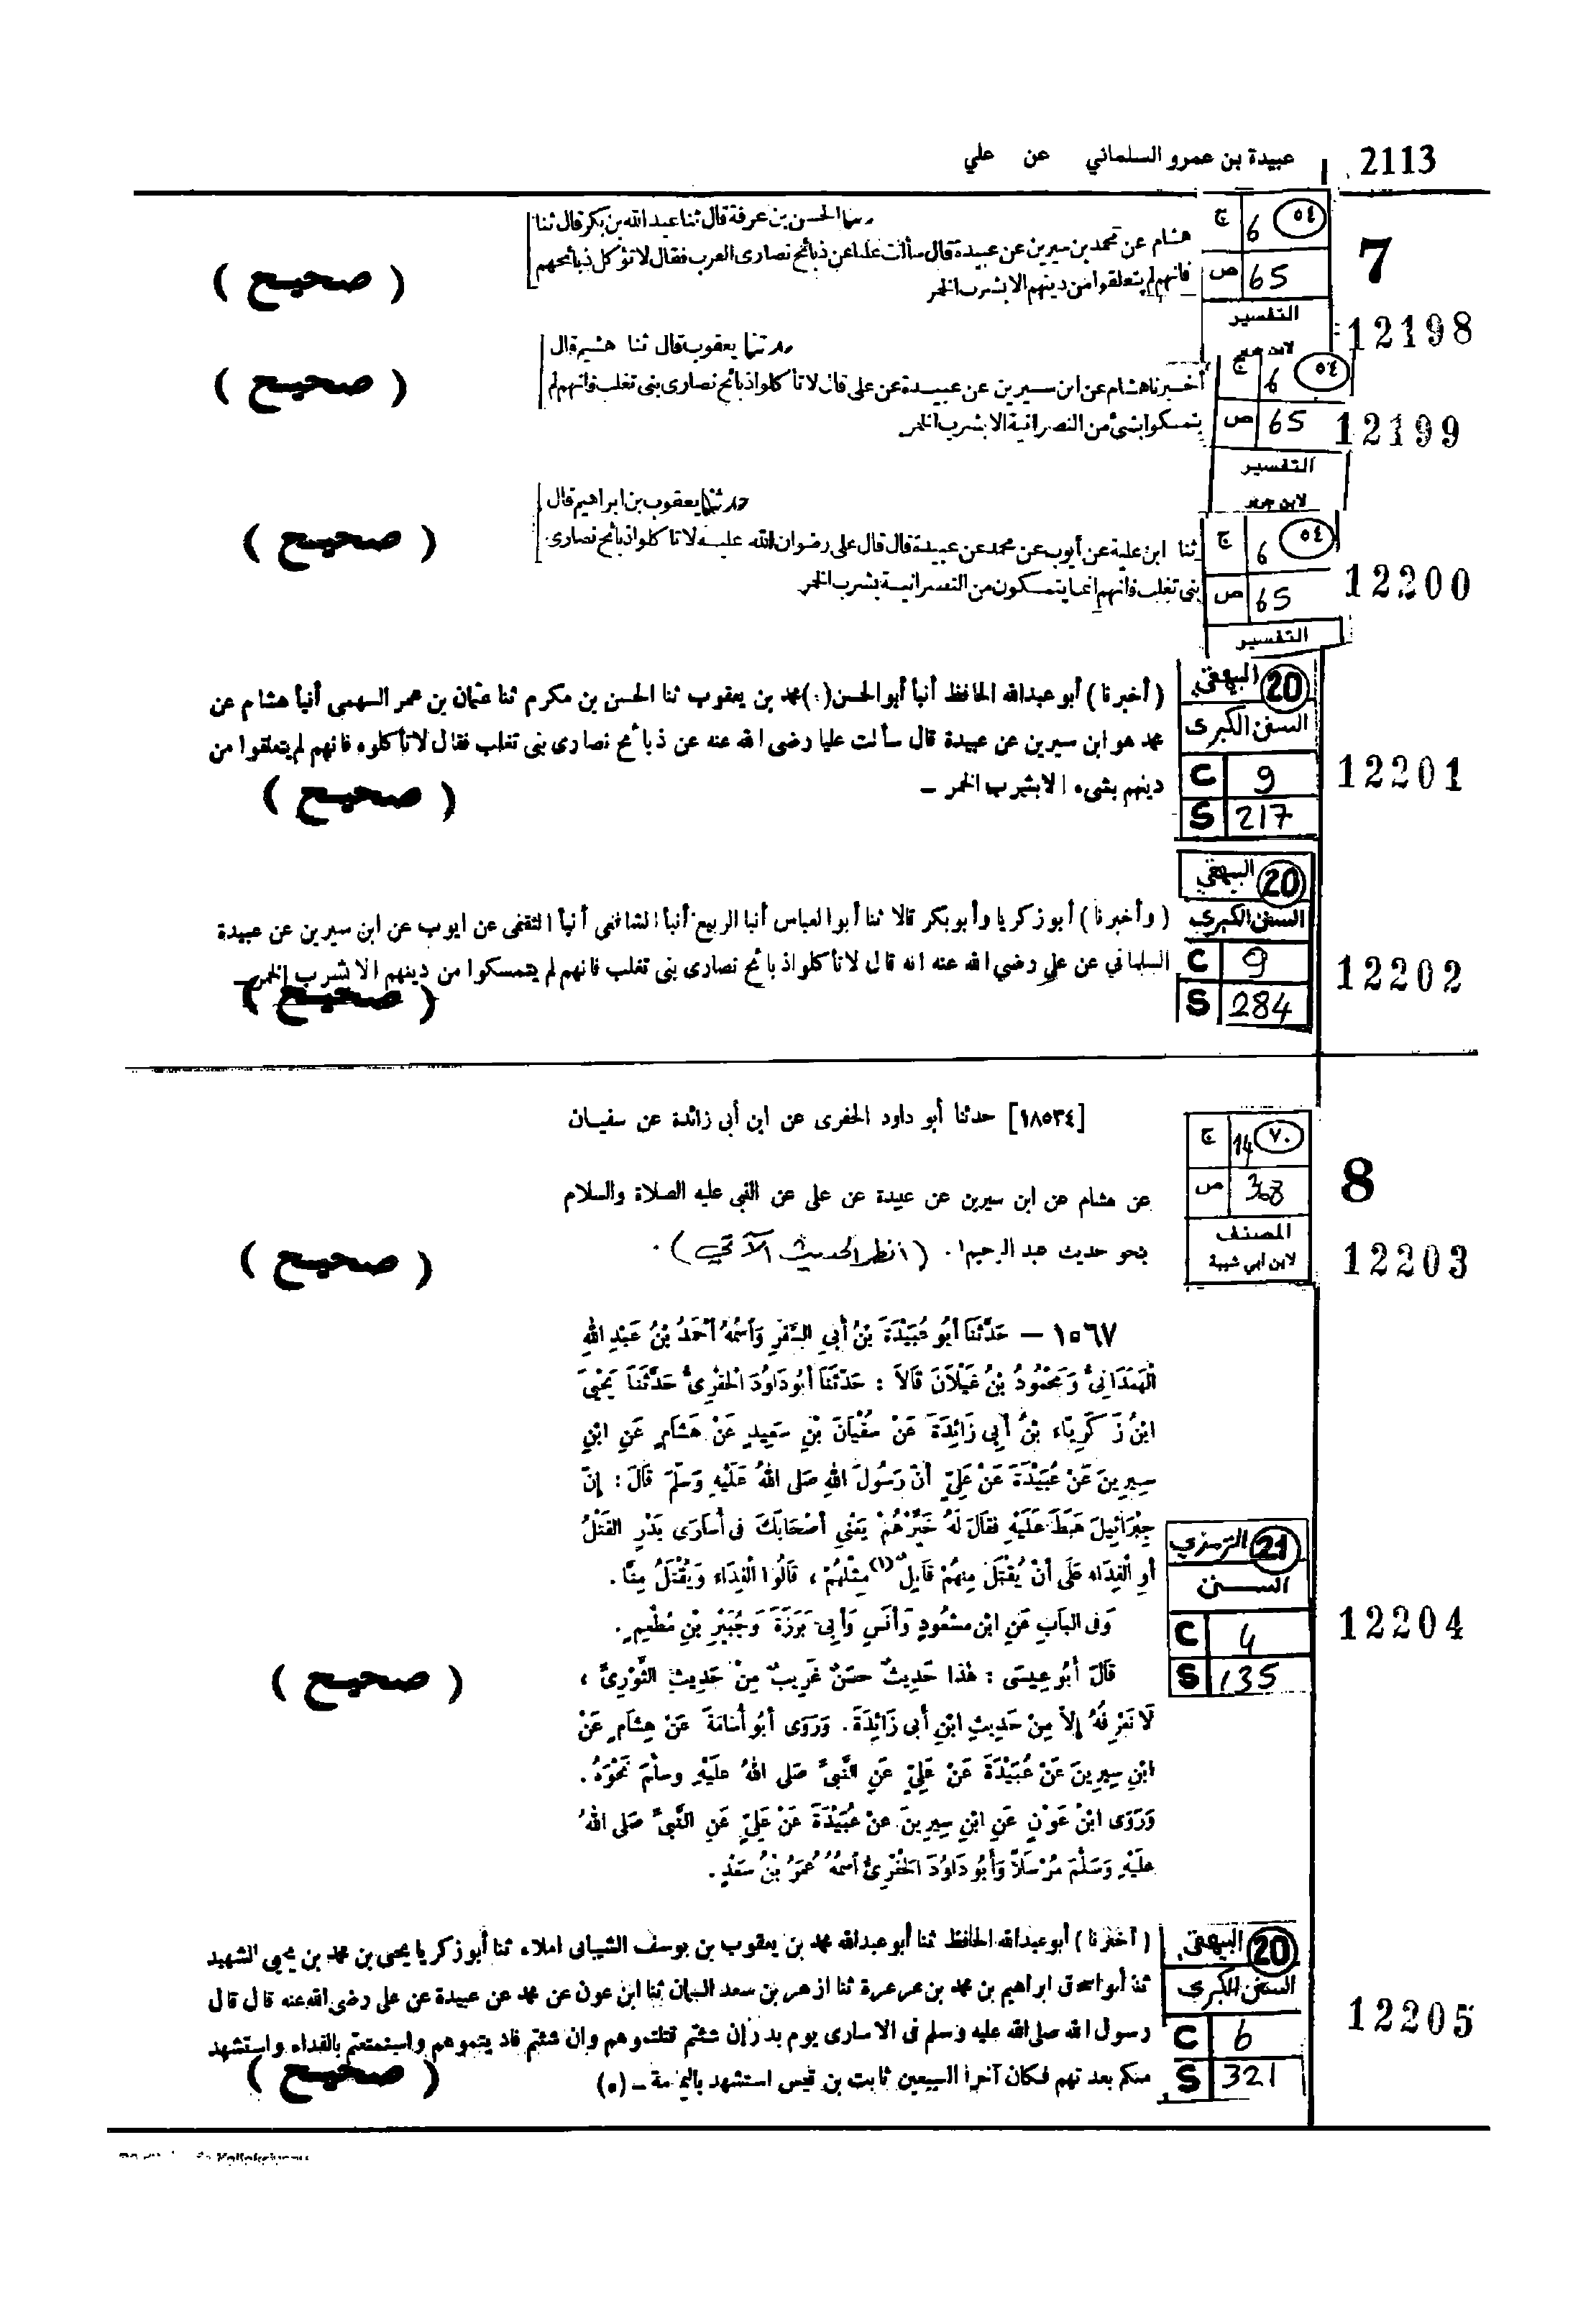 2113 عبيدة بن عمرو السلماني عن علي
7
٥٤ 6 ج
65 ص
التفسير
12198
حدثنا الحسن بن عرفة قال ثنا عبد الله بن بكر قال ثنا
هشام عن محمد بن سيرين عن عبيدة قال سألت عليا عن ذبائح نصارى العرب فقال لا تؤكل ذبائحهم
فانهم لم يتعلقوا من دينهم الا بشرب الخمر
( صحيح )
٥٤ 6 ج
65 ص
التفسير
لابن جرير
12199
حدثنا يعقوب قال ثنا هشيم قال
أخبرنا هشام عن ابن سيرين عن عبيدة عن على قال لا تأكلوا ذبائح نصارى بنى تغلب فانهم لم
يتمسكوا بشئ من النصرانية الا بشرب الخمر
( صحيح )
٥٤ 6 ج
65 ص
التفسير
12200
حدثنا يعقوب بن ابراهيم قال
ثنا ابن علية عن أيوب عن محمد عن عبيدة قال قال على رضوان الله عليه لا تأكلوا ذبائح نصارى
بنى تغلب فانهم انما يتمسكون من النصرانية بشرب الخمر
( صحيح )
20 البيهقي
السنن الكبرى
C 9
S 217
12201
( أخبرنا ) أبو عبدالله الحافظ أنبأ أبو الحسن (٠) محمد بن يعقوب ثنا الحسن بن مكرم ثنا عثمان بن عمر السهمى أنبأ هشام عن
محمد هو ابن سيرين عن عبيدة قال سألت عليا رضى الله عنه عن ذبائح نصارى بنى تغلب فقال لا تأكلوه فانهم لم يتعلقوا من
دينهم بشىء الا بشرب الخمر –
( صحيح )
20 البيهقي
السنن الكبرى
C 9
S 284
12202
( وأخبرنا ) أبو زكريا وأبو بكر قالا ثنا أبو العباس أنبا الربيع أنبأ الشافعى أنبأ الثقفى عن ايوب عن ابن سيرين عن عبيدة
السلماني عن علي رضي الله عنه انه قال لا تأكلوا ذبائح نصارى بنى تغلب فانهم لم يتمسكوا من دينهم الا بشرب الخمر –
( صحيح )
8
٧٠ 14 ج
368 ص
المصنف
لابن ابي شيبة
12203
[١٨٥٣٤] حدثنا أبو داود الحفرى عن ابن أبى زائدة عن سفيان
عن هشام عن ابن سيرين عن عبيدة عن على عن النبى عليه الصلاة والسلام
بنحو حديث عبد الرحيم ١. ( انظر الحديث الآتي ).
( صحيح )
21 الترمذي
السنن
C 4
S 135
12204
١٥٦٧ – حَدَّثَنَا أَبُو عُبَيْدَةَ بْنُ أَبِي السَّفَرِ وَأَسْمُهُ أَحْمَدُ بْنُ عَبْدِ اللهِ
الْهَمْدَانِيُّ وَمَحْمُودُ بْنُ غَيْلَانَ قَالَا : حَدَّثَنَا أَبُو دَاوُدَ الْحَفَرِيُّ حَدَّثَنَا يَحْيَى
ابْنُ زَكَرِيَّاء بْنُ أَبِي زَائِدَةَ عَنْ سُفْيَانَ بْنِ سَعِيدٍ عَنْ هِشَامٍ عَنِ ابْنِ
سِيرِينَ عَنْ عُبَيْدَةَ عَنْ عَلِيٍّ أَنَّ رَسُولَ اللهِ صَلى اللهُ عَلَيْهِ وَسَلَّمَ قَالَ : إِنَّ
جِبْرَائِيلَ هَبَطَ عَلَيْهِ فَقَالَ لَهُ خَيِّرْهُمْ يَعْنِي أَصْحَابَكَ فِى أُسَارَى بَدْرٍ الْقَتْلُ
أَوِ الْفِدَاء عَلَى أَنْ يُقْتَلَ مِنهُمْ قَابِلٌ (١) مِثْلُهُمْ ، قَالُوا الْفِدَاء وَيُقْتَلُ مِنَّا .
وَفى البَابِ عَنِ ابْنِ مسْعُودٍ وَأَنَسٍ وَأَبِى بَرْزَةَ وَجُبَيْرِ بْنِ مُطْعِمٍ .
قَالَ أَبُو عِيسَى : هٰذَا حَدِيثٌ حَسَنٌ غَرِيبٌ مِنْ حَدِيثِ الثَّوْرِىِّ ،
لَا نَعْرِفُهُ إلاَّ مِنْ حَدِيثِ ابْنِ أَبِى زَائِدَةَ . وَرَوَى أَبُو أُسَامَةَ عَنْ هِشَامٍ عَنْ
ابْنِ سِيرِينَ عَنْ عُبَيْدَةَ عَنْ عَلِيٍّ عَنِ النَّبِىِّ صَلى اللهُ عَلَيْهِ وسَلَّمَ نَحْوَهُ .
وَرَوَى ابْنُ عَوْنٍ عَنِ ابْنِ سِيرِينَ عَنْ عُبَيْدَةَ عَنْ عَلِيٍّ عَنِ النَّبىِّ صَلى اللهُ
عَلَيْهِ وَسَلَّمَ مُرْسَلاً وَأَبُو دَاوُدَ الْحَفَرِيُّ أَسْمُهُ عُمَرُ بْنُ سَعْدٍ .
( صحيح )
20 البيهقي
السنن الكبرى
C 6
S 321
12205
( أخبرنا ) أبو عبدالله الحافظ ثنا أبو عبدالله محمد بن يعقوب بن يوسف الشيبانى املاء ثنا أبو زكريا يحيى بن محمد بن يحيى الشهيد
ثنا أبو اسحاق ابراهيم بن محمد بن عرعرة ثنا ازهر بن سعد السمان ثنا ابن عون عن محمد عن عبيدة عن على رضى الله عنه قال قال
رسول الله صلى الله عليه وسلم فى الاسارى يوم بدر إن شئتم قتلتموهم وان شئتم فاديتموهم واستمتعتم بالفداء واستشهد
منكم بعدتهم فكان آخر السبعين ثابت بن قيس استشهد باليمامة – (٥)
( صحيح )